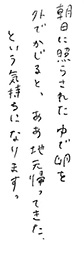 朝日に照らされたゆで卵を
外でかじると、ああ地元帰ってきた、
という気持ちになります。